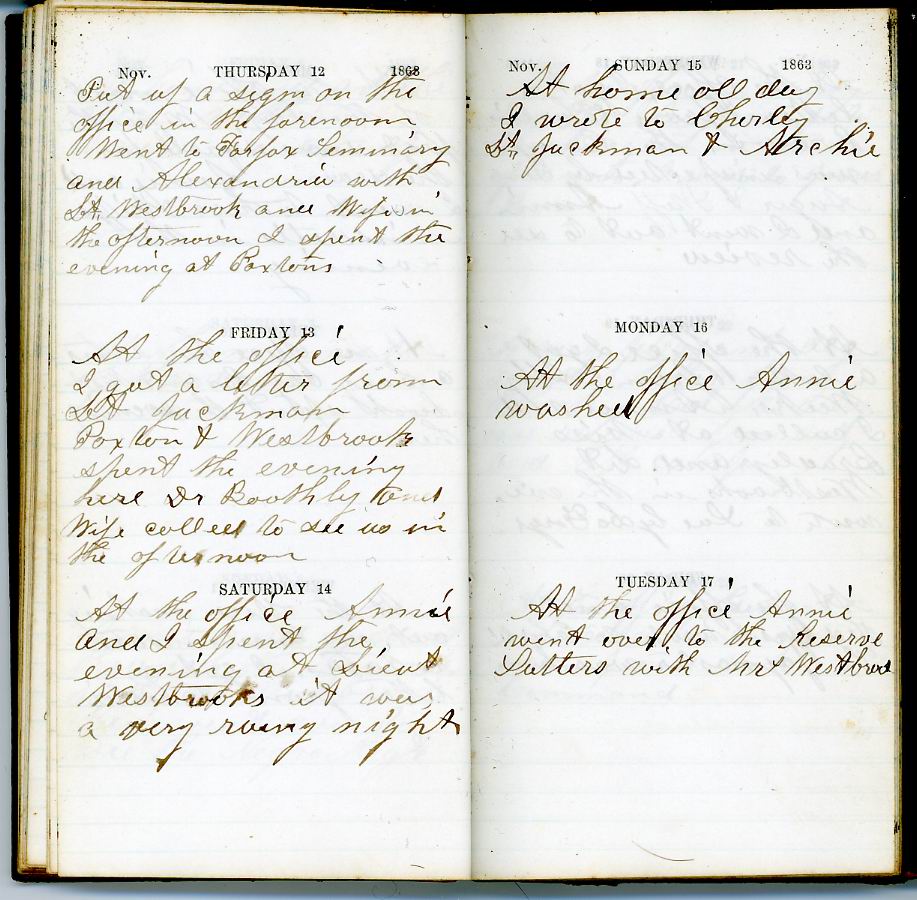 Nov. THURSDAY 12 1863
Put up a sign on the
office in the forenoon
Went to Fairfax Seminary
and Alexandria with
Lt. Westbrook and Wife in
the afternoon I spent the
evening at Paxtons
FRIDAY 13
At the office
I got a letter from
Lt Jackman
Paxton & Westbrook
spent the evening
here Dr Boothby and
Wife called to see us in
the afternoon
SATURDAY 14
At the office Annie
and I spent the
evening at Lieut
Westbrooks it was
a very rainy night
Nov. SUNDAY 15 1863
At home all day
I wrote to Charley
Lt. Jackman & Archie
MONDAY 16
At the office Annie
washed
TUESDAY 17
At the office Annie
went over to the Reserve
with Mrs Westbroo